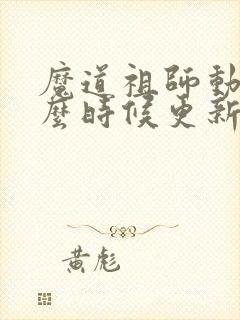 魔道祖師動
麼時候更新
黃彪